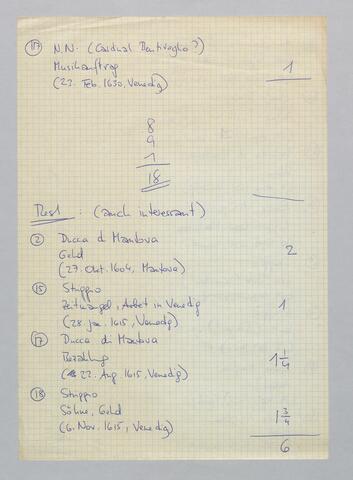 (117) N.N. (Cardinal Bentivoglio?)
Musikauftrag 1
(23. Feb. 1630, Venedig)
8
9
1
18
Rest : (auch interessant)
(2) Ducca d Mantova
Geld 2
(27. Okt. 1604, Mantova)
(15) Striggio
Zeitmangel, Arbeit in Venedig 1
(28. Jan. 1615, Venedig)
(17) Ducca di Mantova
Bezahlung 1 1/4
(22. Aug. 1615, Venedig)
(18) Striggio
Söhne, Geld 1 3/4
(6. Nov. 1615, Venedig)
6